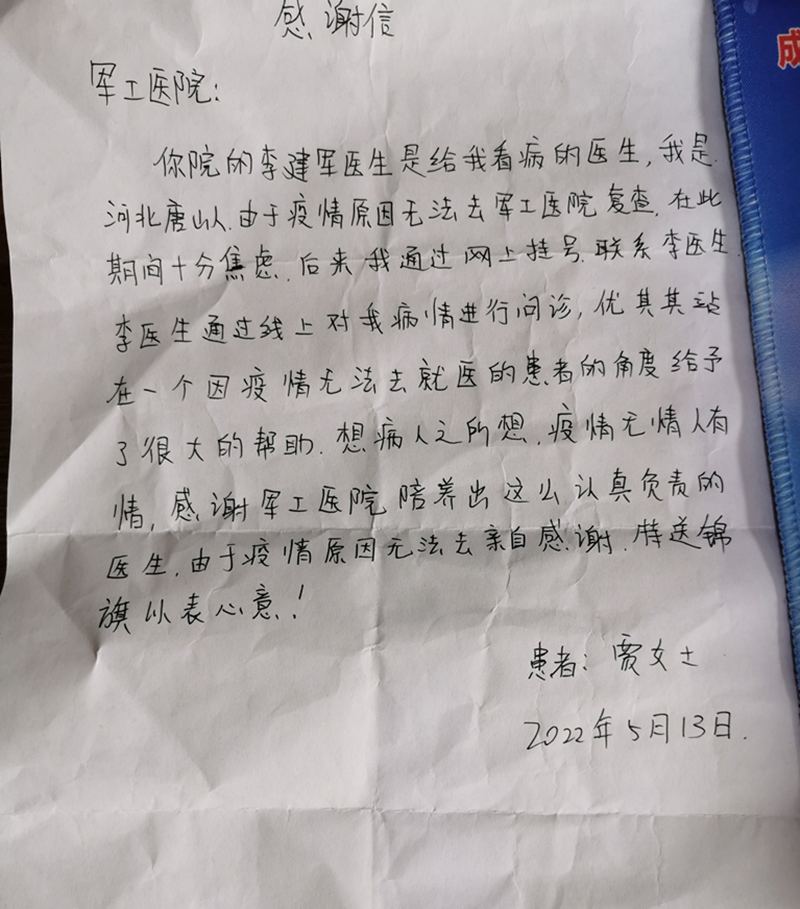 感谢信
成
军工医院：
你院的李建军医生是给我看病的医生，我是
河北唐山人.由于疫情原因无法去军工医院复查.在此
期间十分焦虑.后来我通过网上挂号.联系李医生.
李医生通过线上对我病情进行问诊，优其其站
在一个因疫情无法去就医的患者的角度给予
了很大的帮助.想病人之所想.疫情无情人有
情，感谢军工医院陪养出这么认真负责的
医生.由于疫情原因无法去亲自感谢.特送锦
旗以表心意！
患者：贾女士
2022年5月13日.